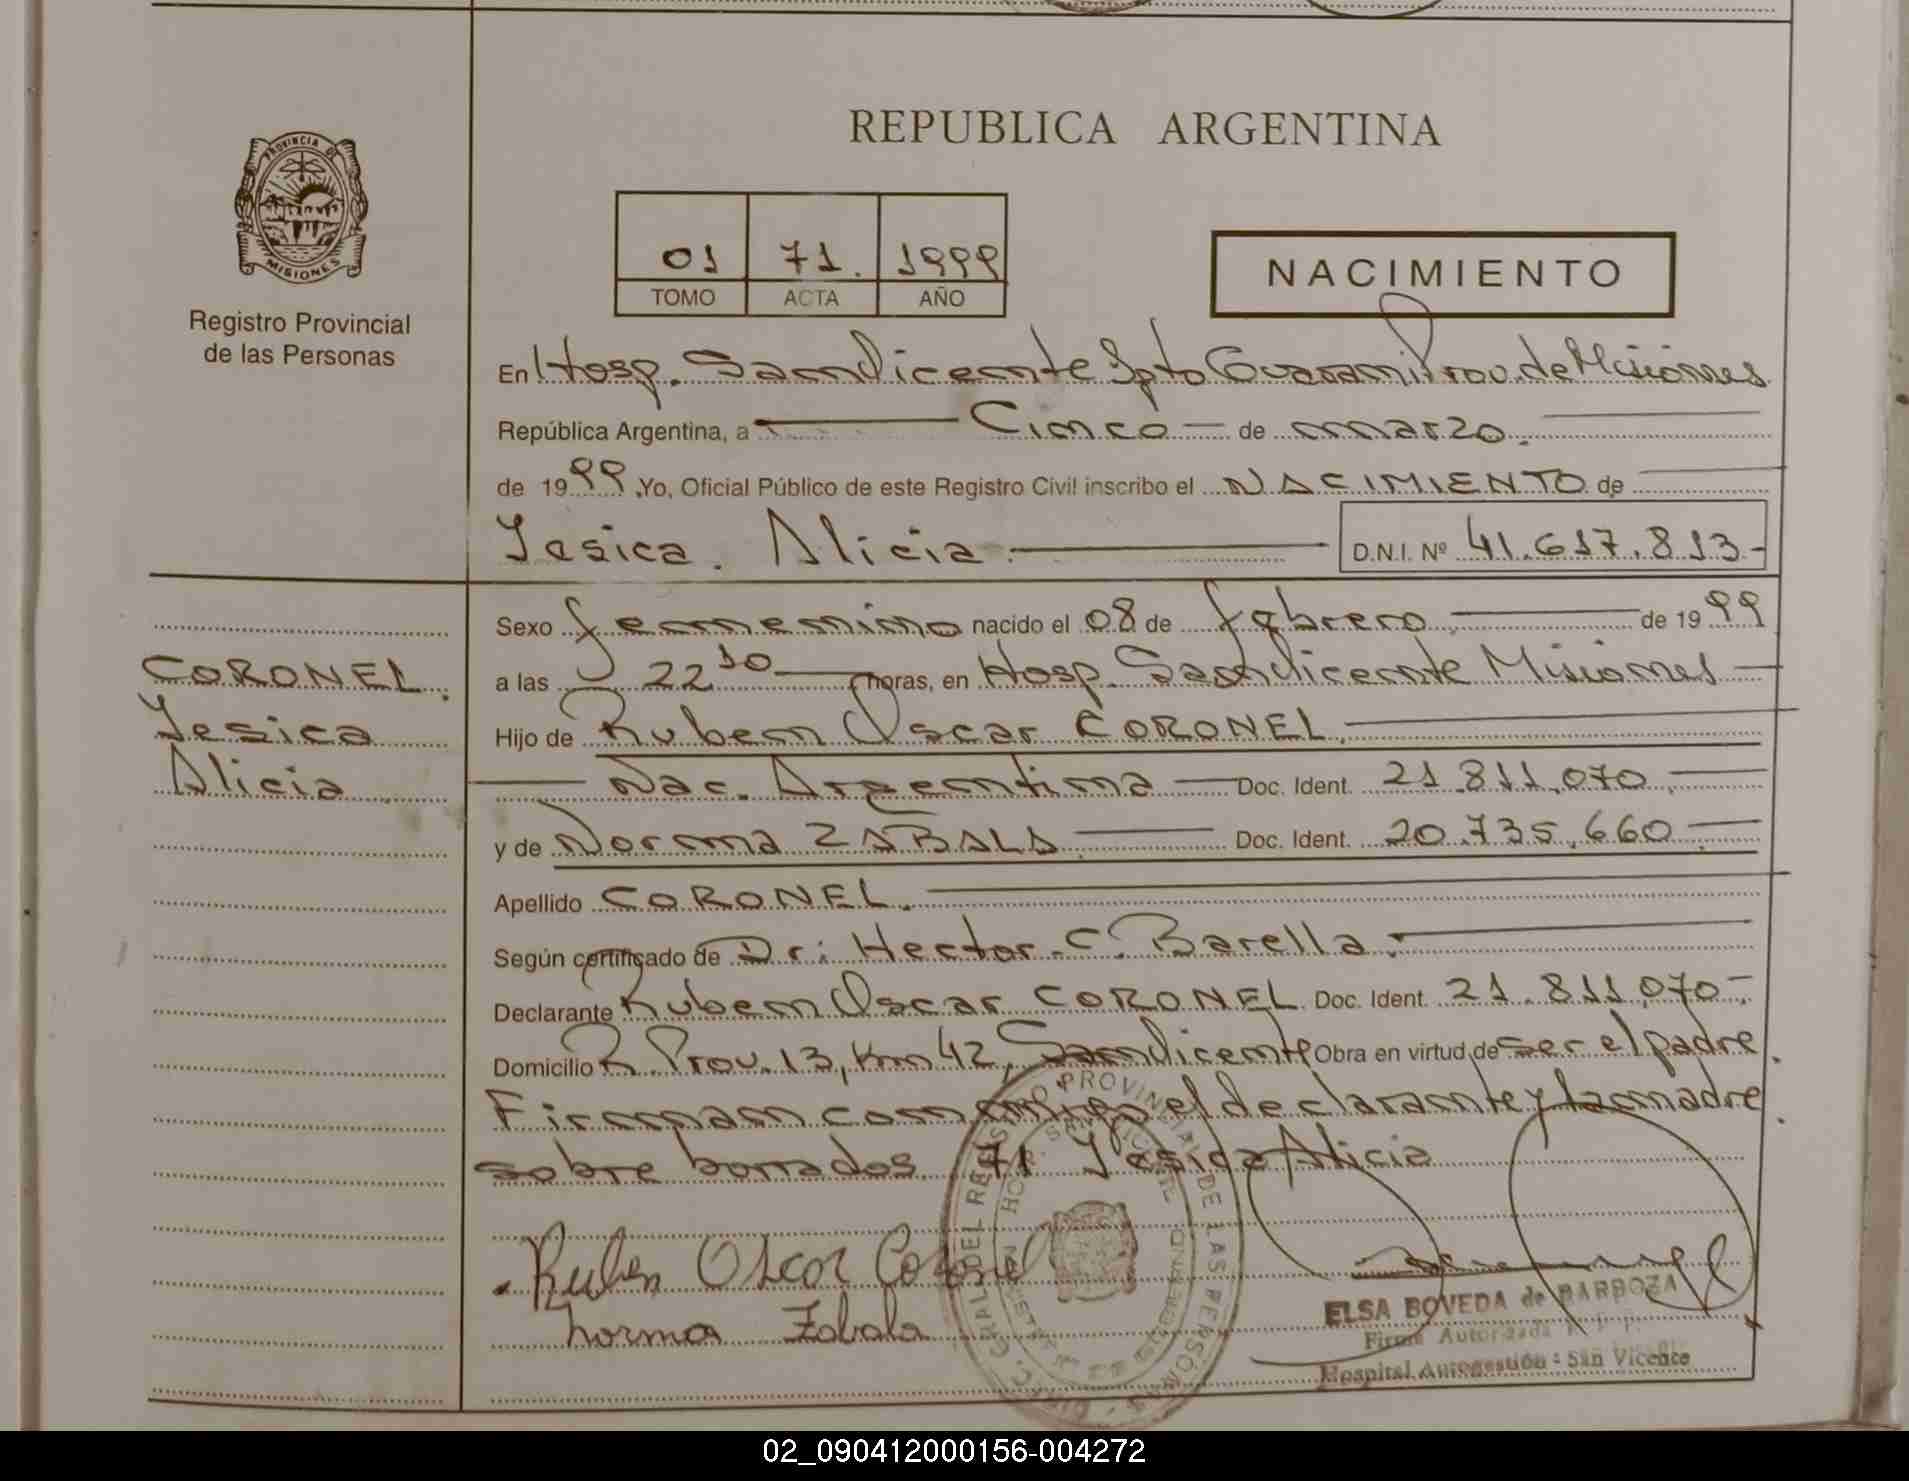 REPUBLICA ARGENTINA
PROVINCIA DE
MISIONES
Registro Provincial
de las Personas
01 71. 1999
TOMO ACTA AÑO
NACIMIENTO
En Hosp. San Vicente Dpto Guarani Prov. de Misiones
República Argentina, a Cinco de marzo.
de 1999, Yo, Oficial Público de este Registro Civil inscribo el NACIMIENTO de
Yesica. Alicia. D.N.I. Nº 41.617.813-
Sexo femenino nacido el 08 de febrero de 1999
a las 22 10 horas, en Hosp. San Vicente Misiones
Hijo de Ruben Oscar CORONEL.
Nac. Argentina Doc. Ident. 21.811.070.
y de Norma ZABALA Doc. Ident. 20.735.660
Apellido CORONEL.
Según certificado de Dr: Hector. C. Barella.
Declarante Ruben Oscar CORONEL Doc. Ident. 21.811.070-
Domicilio R. Prov. 13, Km 42, San Vicente Obra en virtud de ser el padre.
Firman conmigo el declarante y la madre.
sobre borrados 71 Yesica Alicia
CORONEL.
Yesica
Alicia
Ruben Oscar Coronel
Norma Zabala
ELSA BOVEDA de BARBOZA
Firma Autorizada
Hospital Autogestión - San Vicente
02_090412000156-004272